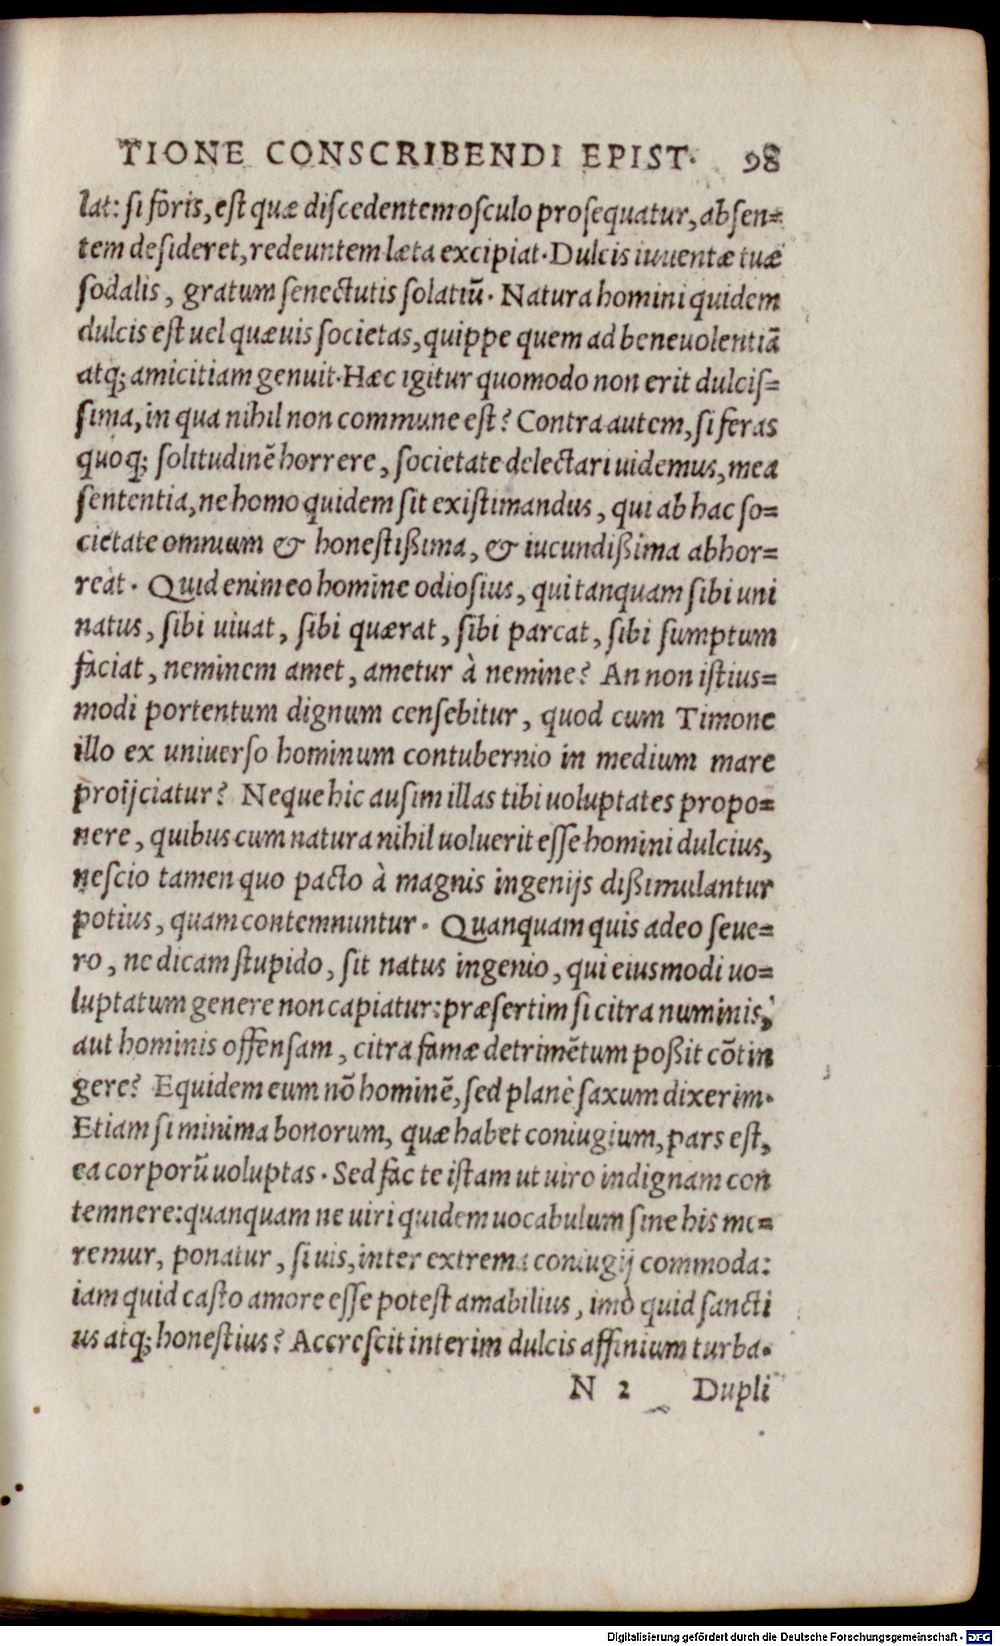 TIONE CONSCRIBENDI EPIST. 98
lat: si foris, est quæ discedentem osculo prosequatur, absen=
tem desideret, redeuntem læta excipiat. Dulcis iuuentæ tuæ
sodalis, gratum senectutis solatiũ. Natura homini quidem
dulcis est uel quæuis societas, quippe quem ad beneuolentiã
atq; amicitiam genuit. Hæc igitur quomodo non erit dulcis=
sima, in qua nihil non commune est? Contra autem, si feras
quoq; solitudinẽ horrere, societate delectari uidemus, mea
sententia, ne homo quidem sit existimandus, qui ab hac so=
cietate omnium & honestißima, & iucundißima abhor=
reat. Quid enim eo homine odiosius, qui tanquam sibi uni
natus, sibi uiuat, sibi quærat, sibi parcat, sibi sumptum
faciat, neminem amet, ametur à nemine? An non istius=
modi portentum dignum censebitur, quod cum Timone
illo ex uniuerso hominum contubernio in medium mare
proijciatur? Neque hic ausim illas tibi uoluptates propo=
nere, quibus cum natura nihil uoluerit esse homini dulcius,
nescio tamen quo pacto à magnis ingenijs dißimulantur
potius, quam contemnuntur. Quanquam quis adeo seue=
ro, ne dicam stupido, sit natus ingenio, qui eiusmodi uo=
luptatum genere non capiatur: præsertim si citra numinis,
aut hominis offensam, citra famæ detrimẽtum poßit cõtin
gere? Equidem eum nõ hominẽ, sed planè saxum dixerim.
Etiam si minima bonorum, quæ habet coniugium, pars est,
ea corporũ uoluptas. Sed fac te istam ut uiro indignam con
temnere: quanquam ne uiri quidem uocabulum sine his me=
remur, ponatur, si uis, inter extrema coniugij commoda:
iam quid casto amore esse potest amabilius, imò quid sancti
us atq; honestius? Accrescit interim dulcis affinium turba.
N 2 Dupli
Digitalisierung gefördert durch die Deutsche Forschungsgemeinschaft - DFG